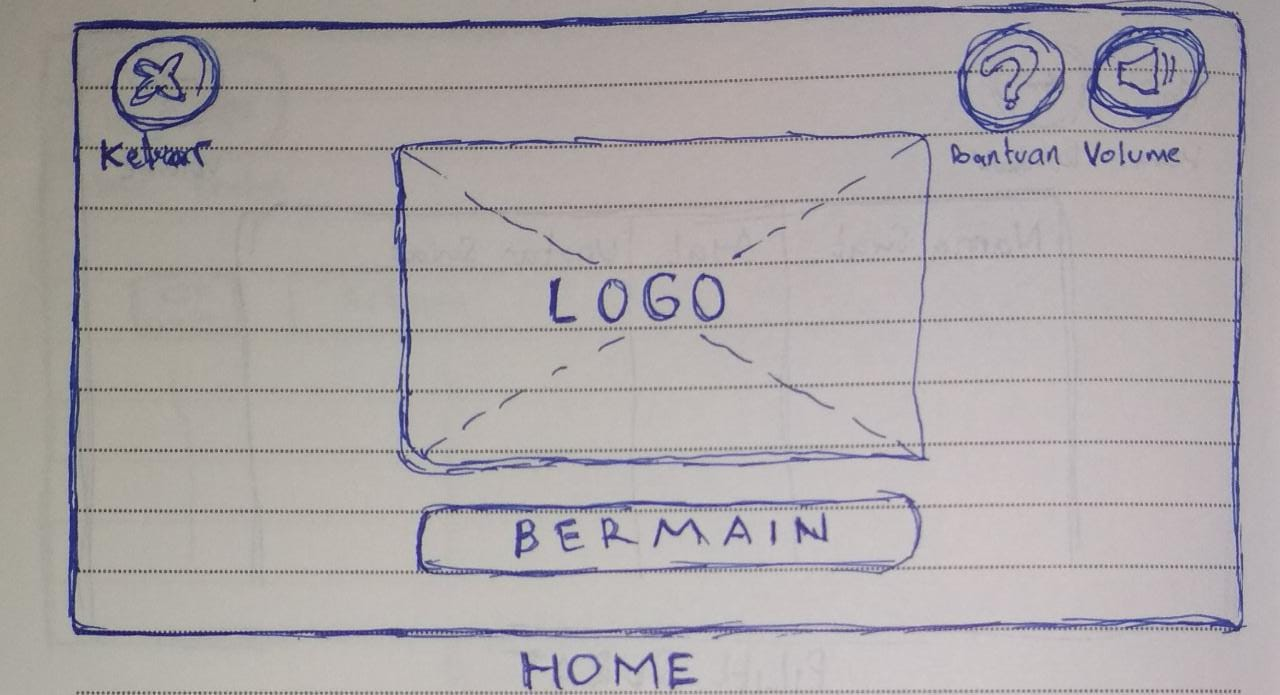 ?
Keluar
Bantuan Volume
LOGO
BERMAIN
HOME